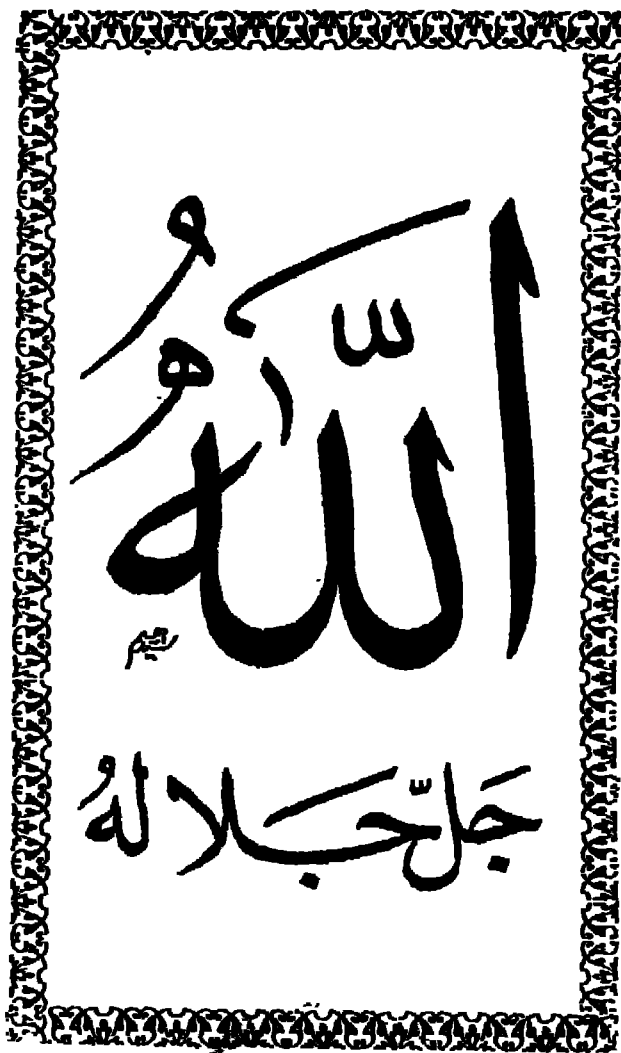 اللّٰهُ
جَلَّ جَلَالُهُ